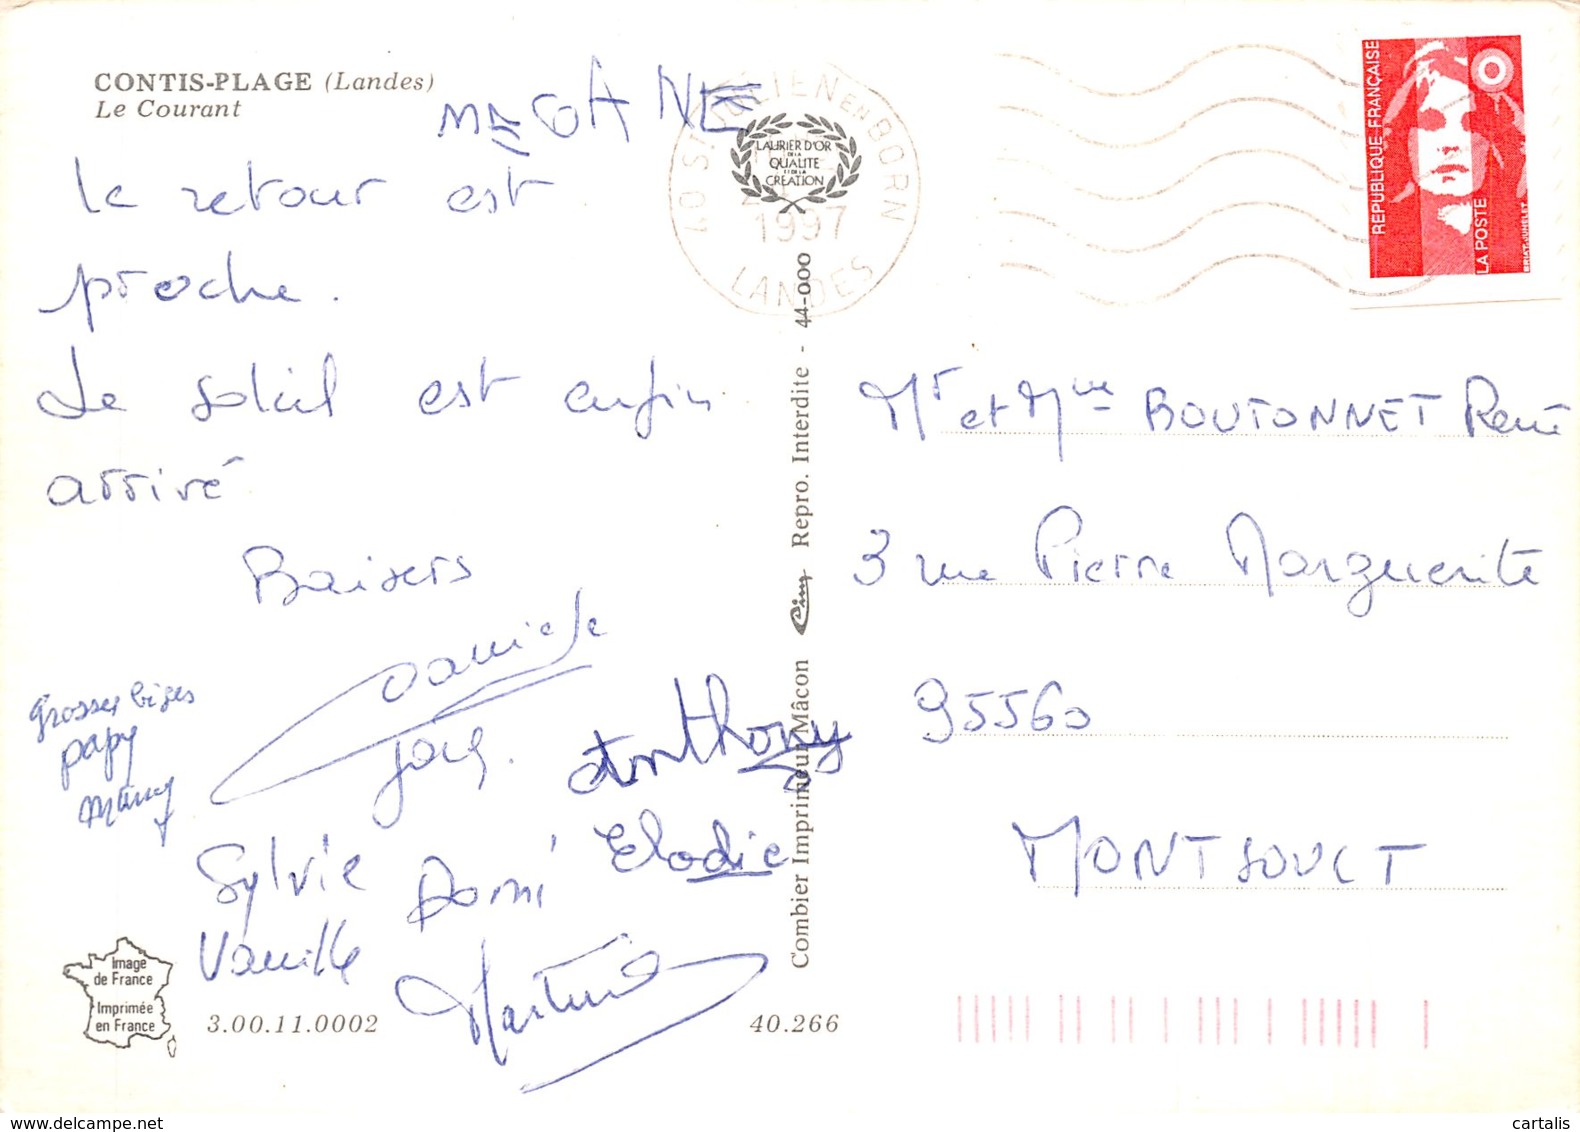 CONTIS-PLAGE (Landes)
Le Courant
MEGANE
Le retour est
proche.
Le soleil est enfin
arrivé
Baisers
Daniele
Grosses bises
papy
mamy
Anthony
Sylvie Domi Elodie
Vanille
Martine
Image
de France
Imprimée
en France
3.00.11.0002
40.266
Combier Imprimeur Mâcon Cim Repro. Interdite - 44-000
LAURIER D'OR
DE LA
QUALITE
ET DE LA
CREATION
40 ST JULIEN EN BORN
1997
LANDES
REPUBLIQUE FRANÇAISE
LA POSTE
BRIAT-JUMELET
Mr et Mme BOUTONNET René
3 rue Pierre Marguerite
95560
MONTSOULT
cartalis